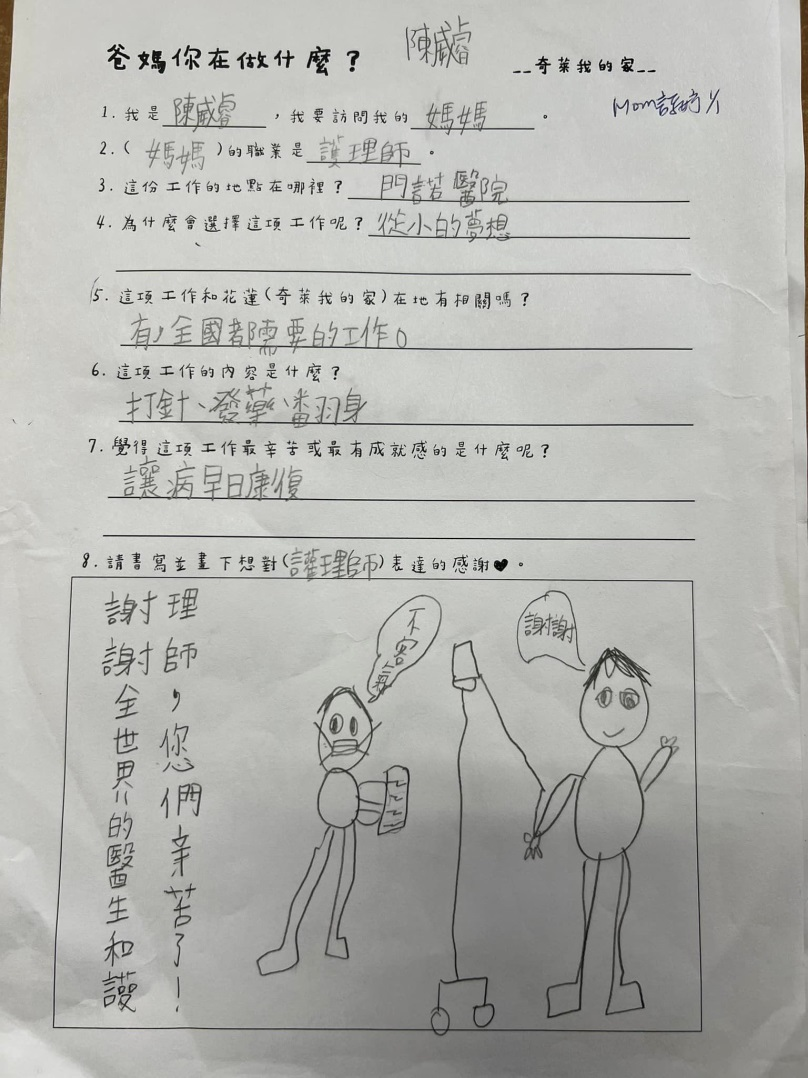 爸媽你在做什麼？
陳威睿
__奇萊我的家__
1. 我是 陳威睿 ，我要訪問我的 媽媽 。
2. ( 媽媽 )的職業是 護理師 。
3. 這份工作的地點在哪裡？ 門諾醫院
4. 為什麼會選擇這項工作呢？ 從小的夢想
5. 這項工作和花蓮(奇萊我的家)在地有相關嗎？
有，全國都需要的工作。
6. 這項工作的內容是什麼？
打針、發藥、潘羽身
7. 覺得這項工作最辛苦或最有成就感的是什麼呢？
讓病早日康復
8. 請書寫並畫下想對(護理師)表達的感謝♥。
謝謝全世界的醫生和護
理師，您們辛苦了！
不客氣
謝謝